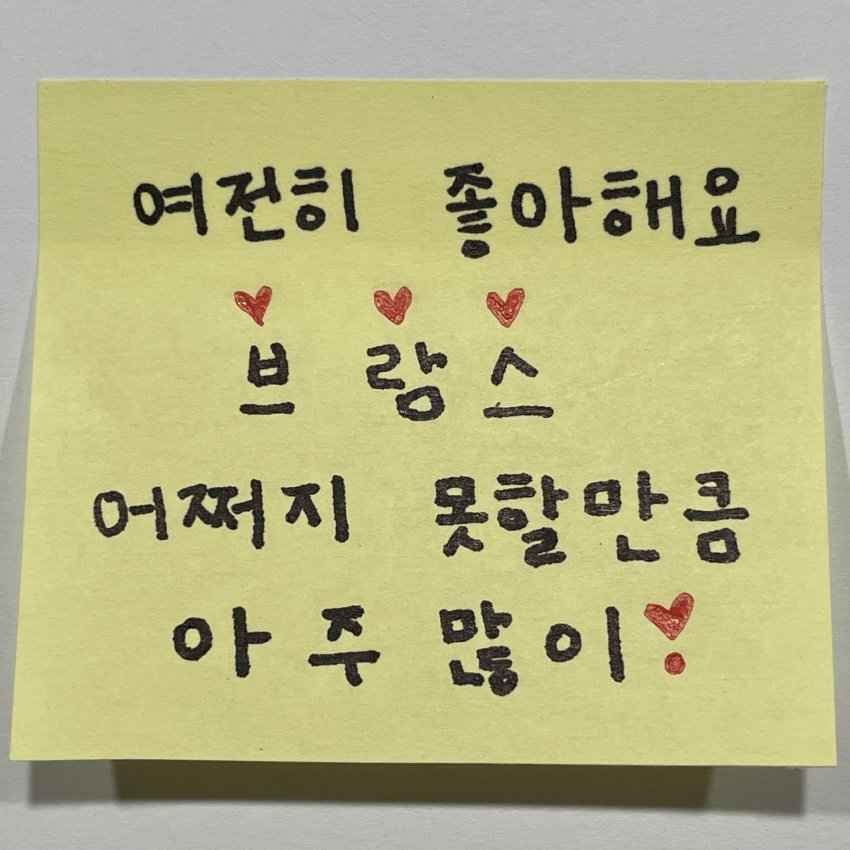 여전히 좋아해요
브람스
어쩌지 못할만큼
아주 많이